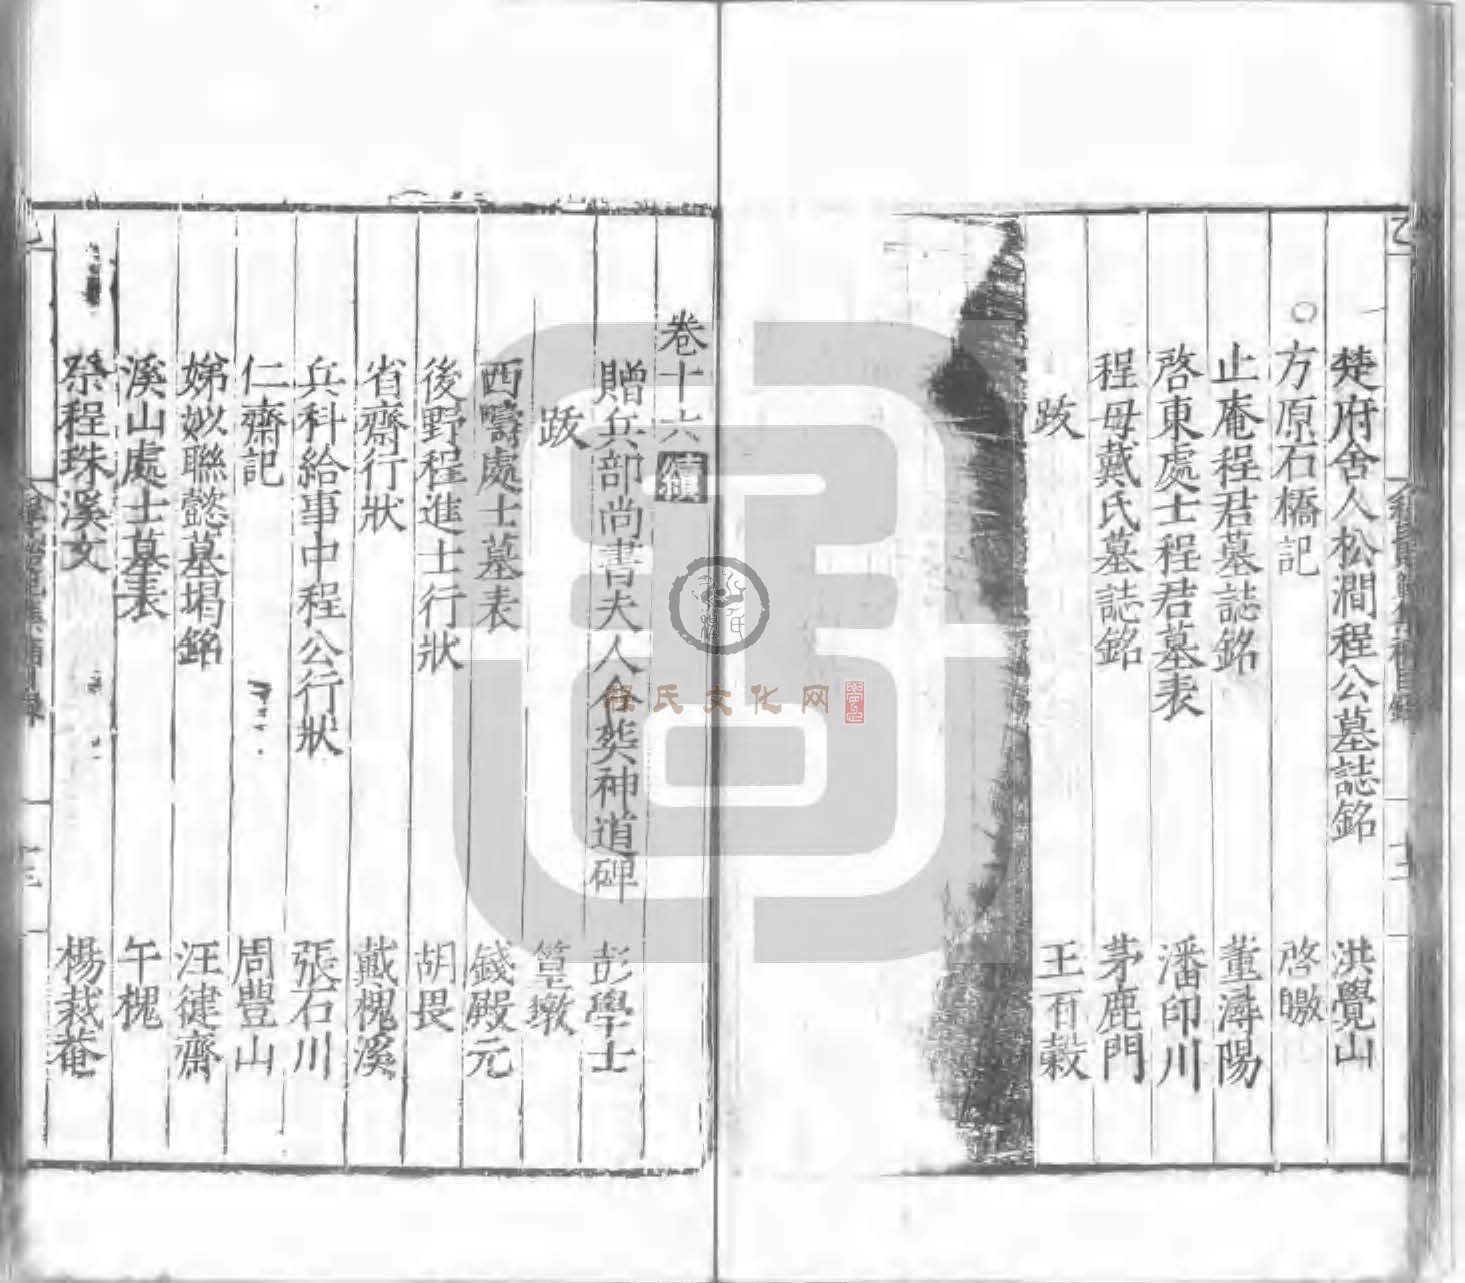 楚府舍人松澗程公墓誌銘 洪覺山
○方原石橋記 啓曒
止庵程君墓誌銘 董潯陽
啓東處士程君墓表 潘印川
程母戴氏墓誌銘 茅鹿門
跋 王百穀
卷十六 續
贈兵部尚書夫人合葬神道碑 彭學士
跋 篁墩
西疇處士墓表 錢殿元
後野程進士行狀 胡畏
省齋行狀 戴槐溪
兵科給事中程公行狀 張石川
仁齋記 周豊山
娣姒聯懿墓碣銘 汪健齋
溪山處士墓表 午槐
祭程珠溪文 楊裁菴
三
程氏文化网